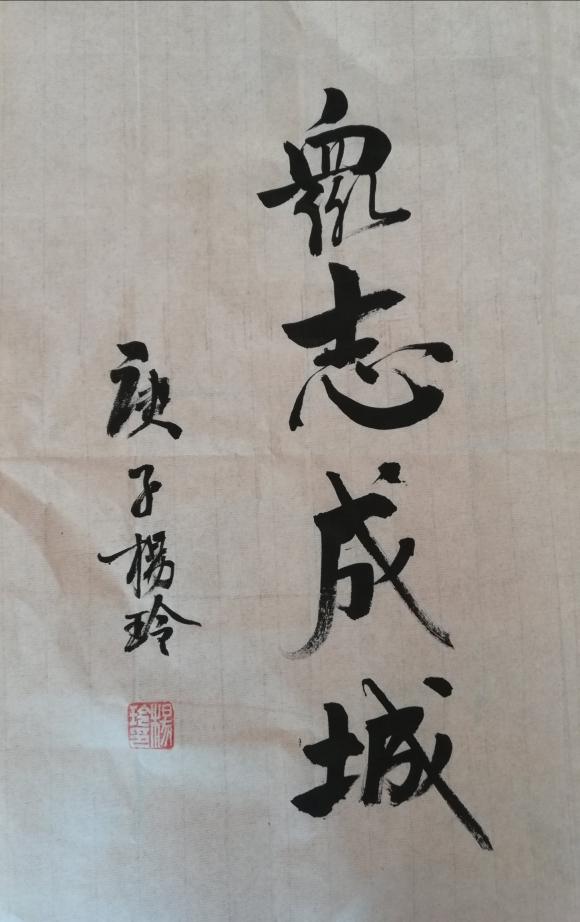 眾志成城
庚子楊玲
楊玲印